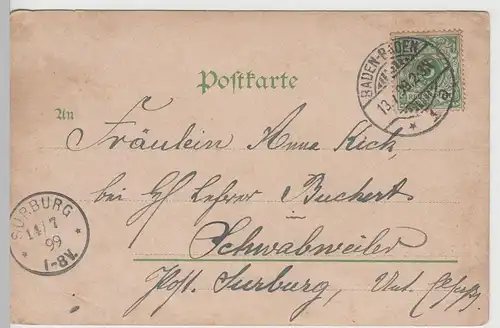 Postkarte
BADEN-BADEN
13.7.99.2-3N.
* 1
An
Fräulein Anna Kick,
bei H Lehrer Buchert
Schwabweiler
Post. Surburg, Unt. Elsaß
SURBURG
14/7
99
* 7-8V. *